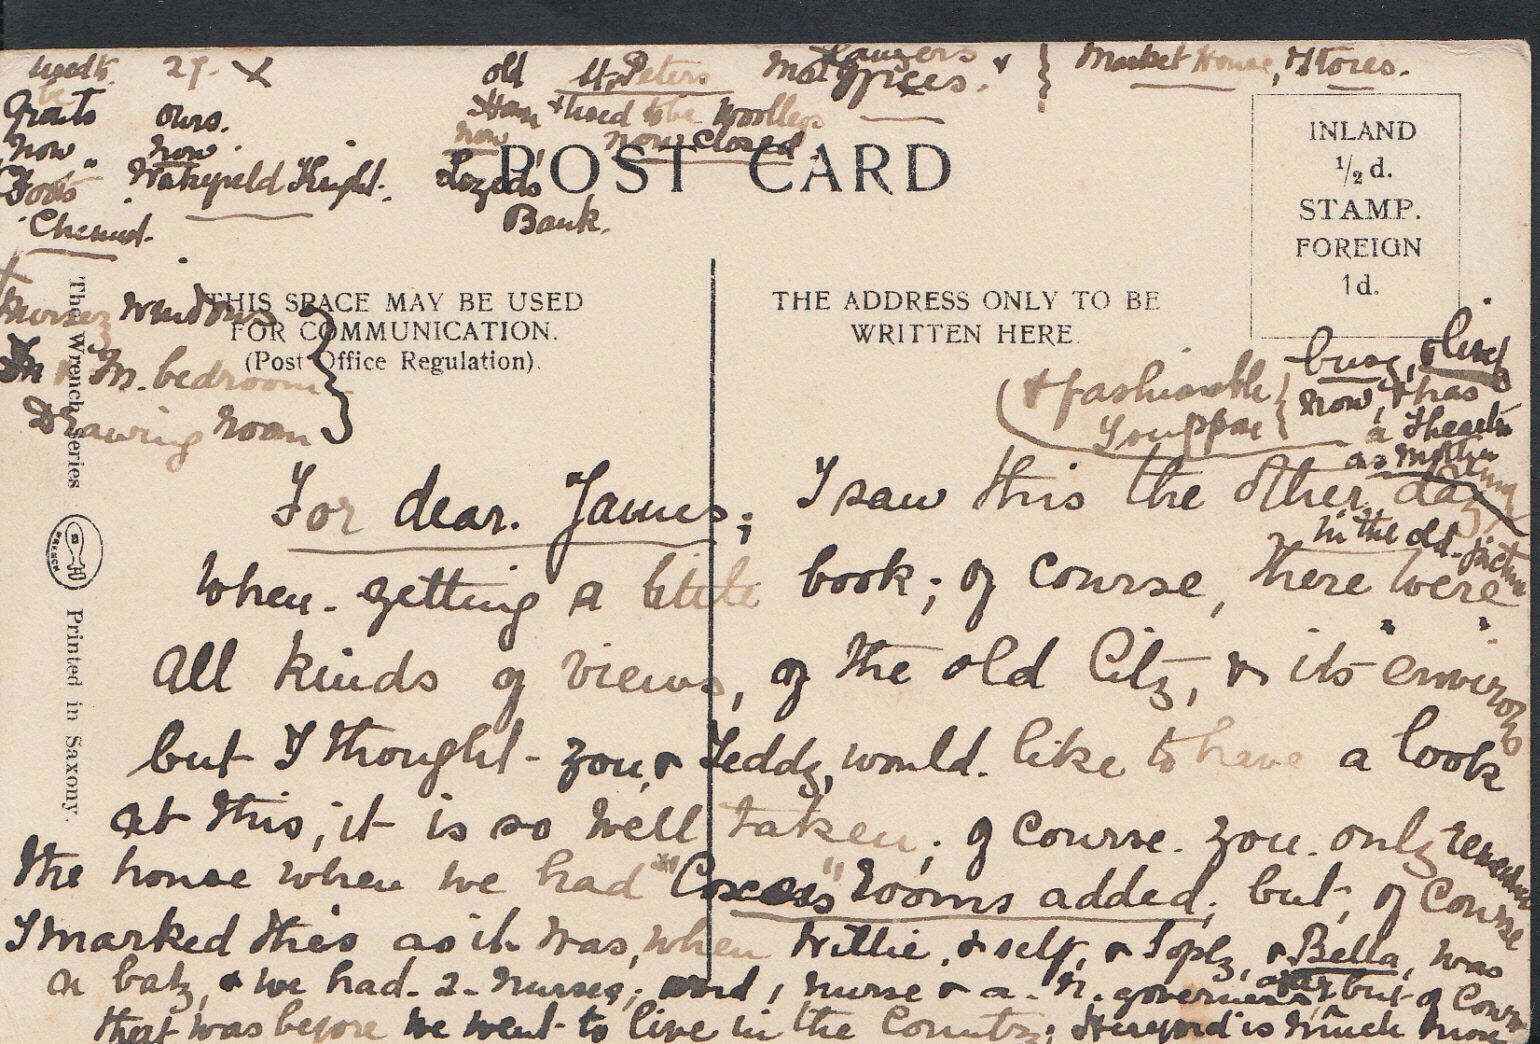 used to 29. X old St. Peters Mat offices. & Market House, Stores.
be
Grants Ours. & used to be Woolleys
now, now now now closed
Wakefield Knight. Lloyds
Bank.
Chemist.
POST CARD
INLAND
½ d.
STAMP.
FOREIGN
1d.
THIS SPACE MAY BE USED
FOR COMMUNICATION.
(Post Office Regulation).
THE ADDRESS ONLY TO BE
WRITTEN HERE.
The Wrench Series
WRENCH
Printed in Saxony.
Nursery windows
M. bedroom
Drawing Room
& fashionable busy,
now, & has
a Theatre
as Mother
in the old picture
For dear. James; I saw this the other day
when. getting a little book; of course, there were
all kinds of views, of the old City, & its "environs"
but I thought - you, & Teddy, would. like to have a look
at this; it is so well taken; of course. you. only remember
the house when we had rooms added; but, of course
I marked this as it was, when Willie, & self, & Sophy, & Bella, was
a baby, & we had. 2. nurses; nurse & a. N. governess, but of course
that was before we went to live in the Country; Hereford is much more